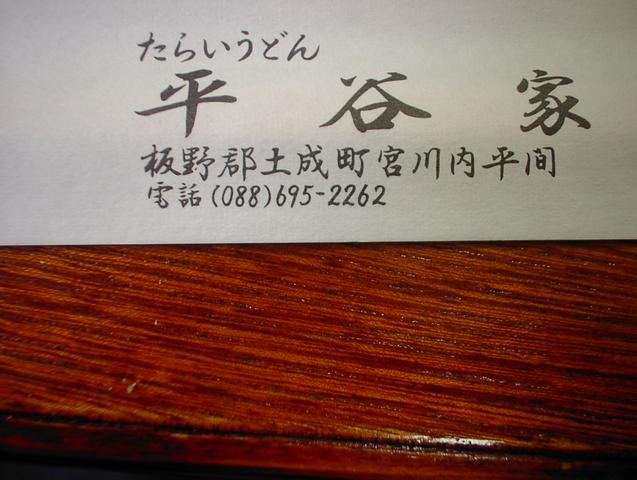 たらいうどん
平谷家
板野郡土成町宮川内平間
電話(088)695-2262